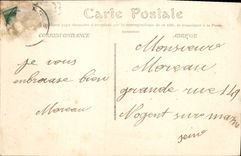 Carte Postale
CORRESPONDANCE
ADRESSE
Monsieur
Moreau
grande rue 149
Nogent sur marne
seine
je vous
embrasse bien
Moreau